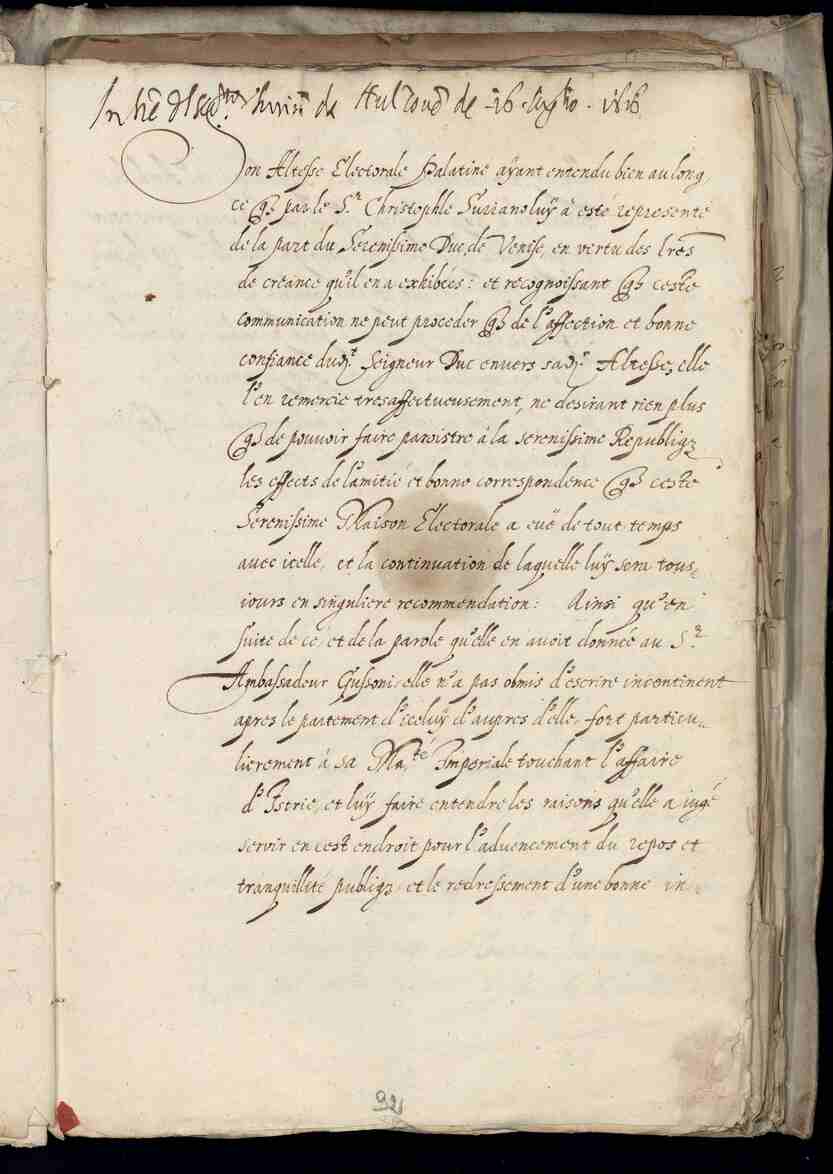 In lre del Seg.rio Surian da Heilbrond de 16 luglio. 1616
Son Altesse Electorale Palatine aÿant entendu bien au long
ce que par le S.r Christophle Suriano luÿ a esté representé
de la part du Serenissime Duc de Venise, en vertu des lres
de creance qu'il en a exhibées: et recognoissant que ceste
communication ne peut proceder que de l'affection et bonne
confiance dud.t Seigneur Duc envers sad.e Altesse, elle
l'en remercie tresaffectueusement, ne desirant rien plus
que de pouvoir faire paroistre à la serenissime Republiq
les effects de l'amitié et bonne correspondence que ceste
Serenissime Maison Electorale a euë de tout temps
avec icelle, et la continuation de laquelle luÿ sera tous-
iours en singuliere recommendation: Ainsi qu'en
suite de ce, et de la parole qu'elle en avoit donnée au S.r
Ambassadeur Gussoni, elle n'a pas obmis d'escrire incontinent
apres le partement d'iceluÿ d'aupres d'elle, fort particu-
lierement à sa Ma.té Imperiale touchant l'affaire
d'Istrie, et luÿ faire entendre les raisons qu'elle a iugé
servir en cest endroit pour l'advencement du repos et
tranquillité publiq, et le redressement d'une bonne in-
92